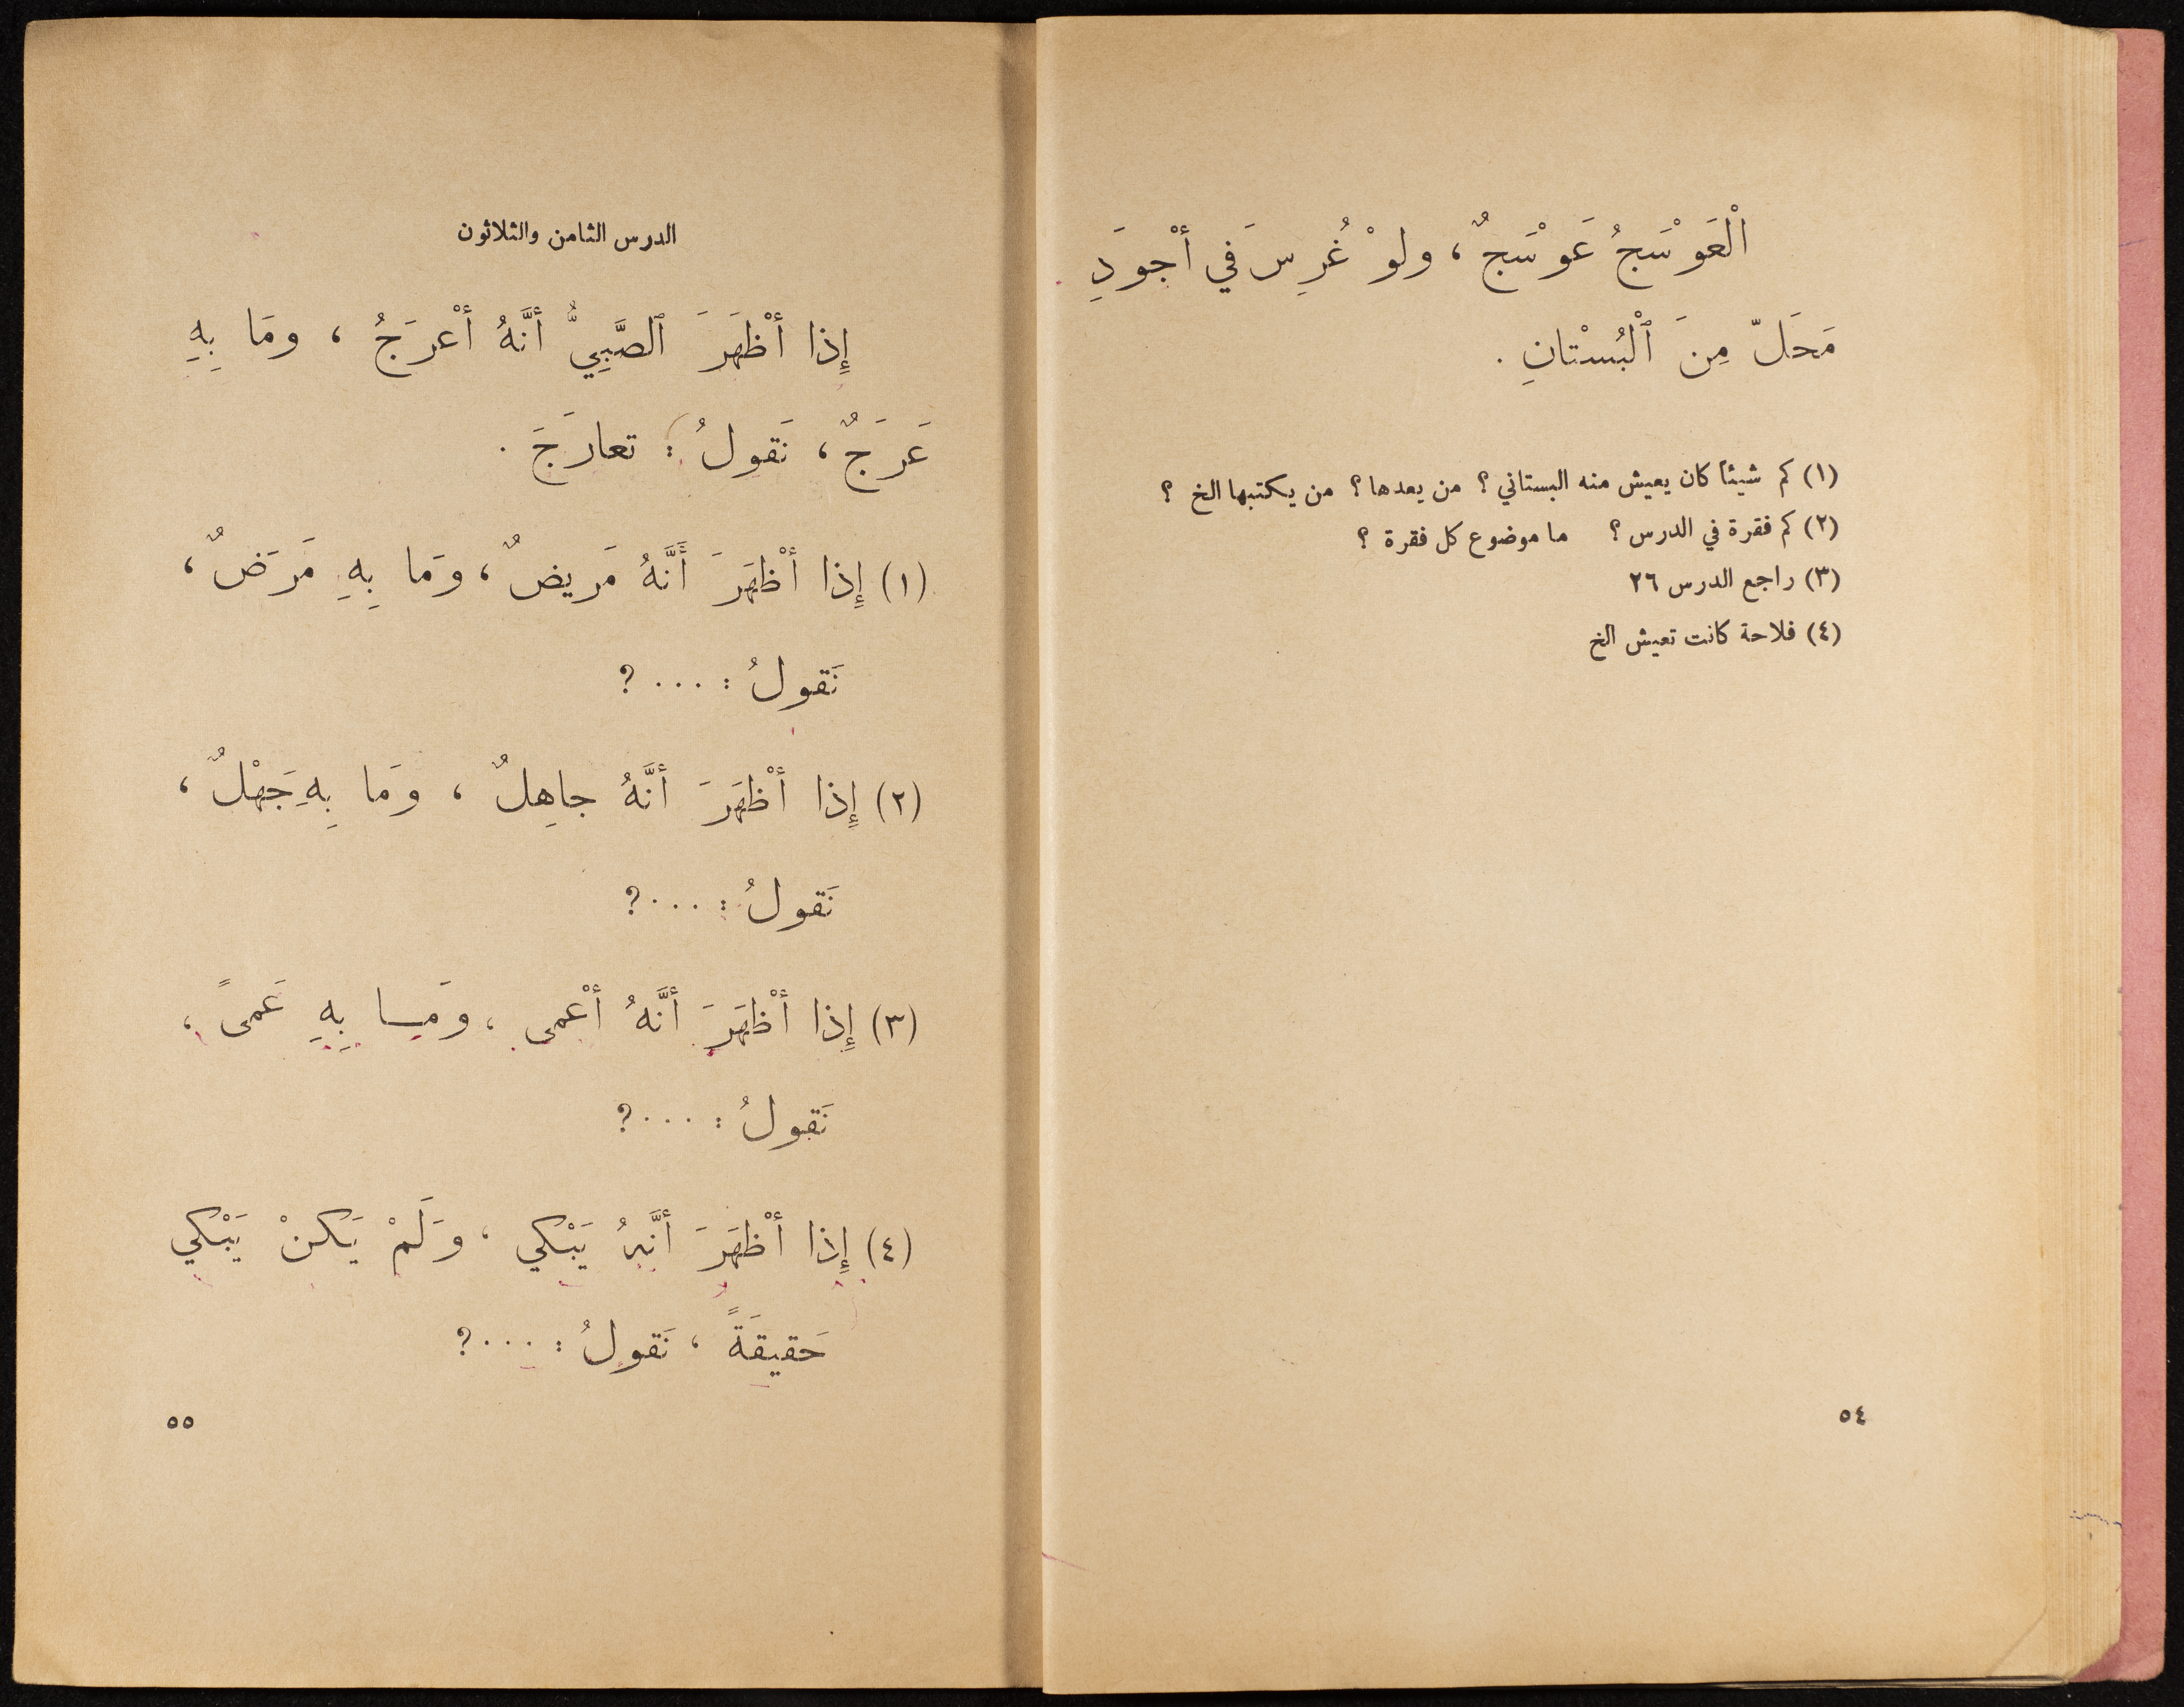 الْعَوْسَجُ عَوْسَجٌ ، ولوْ غُرِسَ في أجْودِ
مَحَلّ مِنَ ٱلْبُسْتانِ .
(١) كم شيئاً كان يعيش منه البستاني ؟ من يعدها ؟ من يكتبها الخ ؟
(٢) كم فقرة في الدرس ؟ ما موضوع كل فقرة ؟
(٣) راجع الدرس ٢٦
(٤) فلاحة كانت تعيش الخ
٥٤
الدرس الثامن والثلاثون
إِذا أظْهَرَ ٱلصَّبِيُّ أنَّهُ أعْرَجُ ، ومَا بِهِ
عَرَجٌ ، نَقولُ : تعارَجَ .
(١) إِذا أظْهَرَ أنَّهُ مَريضٌ ، ومَا بِهِ مَرَضٌ ،
نَقولُ : ... ؟
(٢) إِذا أظْهَرَ أنَّهُ جاهِلٌ ، ومَا بِهِ جَهْلٌ ،
نَقولُ : ... ؟
(٣) إِذا أظْهَرَ أنَّهُ أعْمى ، ومَا بِهِ عَمىً ،
نَقولُ : ... ؟
(٤) إِذا أظْهَرَ أنَّهُ يَبْكي ، وَلَمْ يَكنْ يَبْكي
حَقيقَةً ، نَقولُ : ... ؟
٥٥